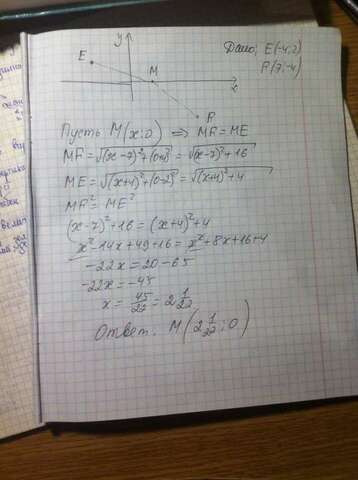 y
Дано: E(-4;2)
F(7;-4)
E
M
x
F
Пусть M(x;0) ⇒ MF=ME
MF=√(x-7)²+(0+4)² = √(x-7)²+16
ME=√(x+4)²+(0-2)² = √(x+4)²+4
MF²=ME²
(x-7)²+16=(x+4)²+4
x²-14x+49+16=x²+8x+16+4
-22x=20-65
-22x=-45
x=45/22=2 1/22
Ответ: M(2 1/22;0)